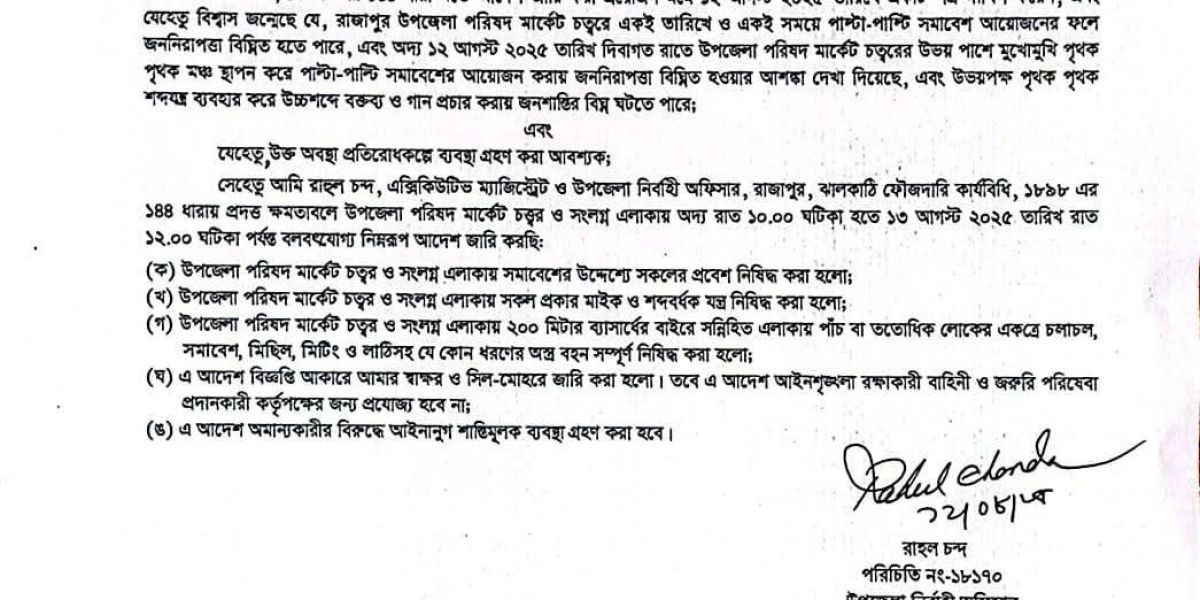 যেহেতু বিশ্বাস জন্মেছে যে, রাজাপুর উপজেলা পরিষদ মার্কেট চত্বরে একই তারিখে ও একই সময়ে পাল্টা-পাল্টি সমাবেশ আয়োজনের ফলে
জননিরাপত্তা বিঘ্নিত হতে পারে, এবং অদ্য ১২ আগস্ট ২০২৫ তারিখ দিবাগত রাতে উপজেলা পরিষদ মার্কেট চত্বরের উভয় পাশে মুখোমুখি পৃথক
পৃথক মঞ্চ স্থাপন করে পাল্টা-পাল্টি সমাবেশের আয়োজন করায় জননিরাপত্তা বিঘ্নিত হওয়ার আশঙ্কা দেখা দিয়েছে, এবং উভয়পক্ষ পৃথক পৃথক
শব্দযন্ত্র ব্যবহার করে উচ্চশব্দে বক্তব্য ও গান প্রচার করায় জনশান্তির বিঘ্ন ঘটতে পারে;
এবং
যেহেতু,উক্ত অবস্থা প্রতিরোধকল্পে ব্যবস্থা গ্রহণ করা আবশ্যক;
সেহেতু আমি রাহুল চন্দ, এক্সিকিউটিভ ম্যাজিস্ট্রেট ও উপজেলা নির্বাহী অফিসার, রাজাপুর, ঝালকাঠি ফৌজদারি কার্যবিধি, ১৮৯৮ এর
১৪৪ ধারায় প্রদত্ত ক্ষমতাবলে উপজেলা পরিষদ মার্কেট চত্বর ও সংলগ্ন এলাকায় অদ্য রাত ১০.০০ ঘটিকা হতে ১৩ আগস্ট ২০২৫ তারিখ রাত
১২.০০ ঘটিকা পর্যন্ত বলবৎযোগ্য নিম্নরূপ আদেশ জারি করছি:
(ক) উপজেলা পরিষদ মার্কেট চত্বর ও সংলগ্ন এলাকায় সমাবেশের উদ্দেশ্যে সকলের প্রবেশ নিষিদ্ধ করা হলো;
(খ) উপজেলা পরিষদ মার্কেট চত্বর ও সংলগ্ন এলাকায় সকল প্রকার মাইক ও শব্দবর্ধক যন্ত্র নিষিদ্ধ করা হলো;
(গ) উপজেলা পরিষদ মার্কেট চত্বর ও সংলগ্ন এলাকায় ২০০ মিটার ব্যাসার্ধের বাইরে সন্নিহিত এলাকায় পাঁচ বা ততোধিক লোকের একত্রে চলাচল,
সমাবেশ, মিছিল, মিটিং ও লাঠিসহ যে কোন ধরণের অস্ত্র বহন সম্পূর্ণ নিষিদ্ধ করা হলো;
(ঘ) এ আদেশ বিজ্ঞপ্তি আকারে আমার স্বাক্ষর ও সিল-মোহরে জারি করা হলো। তবে এ আদেশ আইনশৃঙ্খলা রক্ষাকারী বাহিনী ও জরুরি পরিষেবা
প্রদানকারী কর্তৃপক্ষের জন্য প্রযোজ্য হবে না;
(ঙ) এ আদেশ অমান্যকারীর বিরুদ্ধে আইনানুগ শাস্তিমূলক ব্যবস্থা গ্রহণ করা হবে।
Rahul Chanda
১২/০৮/২৫
রাহুল চন্দ
পরিচিতি নং-১৮১৭০